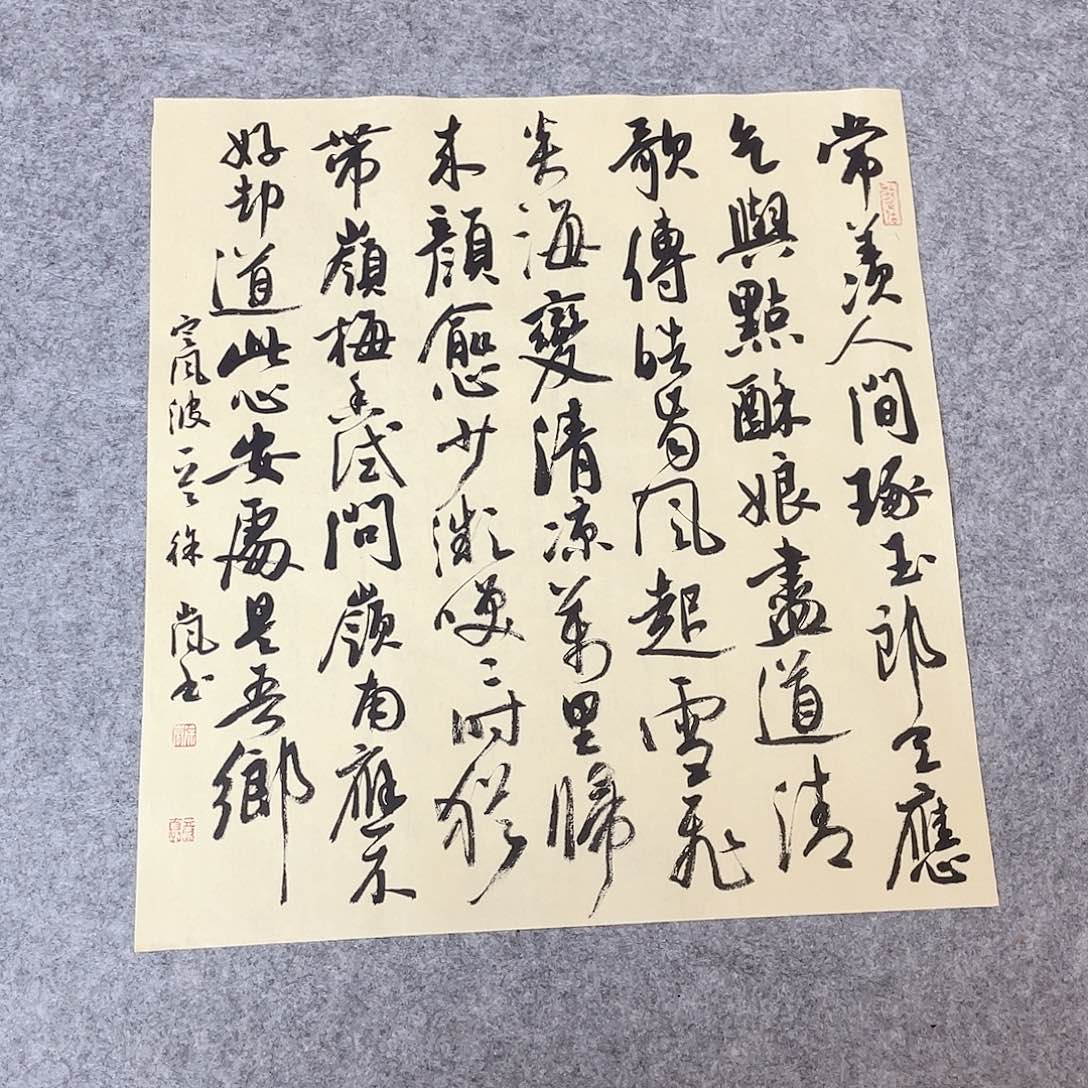 常羨人間琢玉郎天應
乞與點酥娘盡道清
歌傳皓齒風起雪飛
炎海變清凉萬里歸
来顏愈少微笑〻時猶
帶嶺梅香試問嶺南應不
好却道此心安處是吾鄉
定風波一首徐嵐書